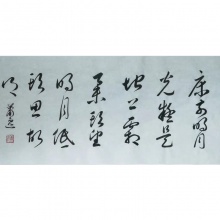 床前明月
光疑是
地上霜
舉頭望
明月低
頭思故
鄉